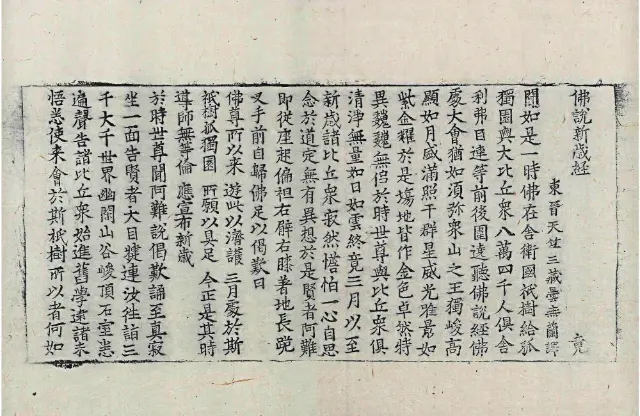 佛說新歲經
東晉天竺三藏曇無蘭譯 竟
聞如是一時佛在舍衛國祇樹給孤
獨園與大比丘衆八萬四千人俱舍
利弗目連等前後圍遶聽佛說經佛
處大會猶如須弥衆山之王獨峻高
顯如月盛滿照干群星威光雅晷如
紫金耀於是塲地皆作金色卓然特
異巍巍無侣於時世尊與比丘衆俱
清淨無量如日如雲終竟三月以至
新歲諸比丘衆寂然憺怕一心自思
念於道定無有異想於是賢者阿難
即從座起偏袒右臂右膝著地長跪
叉手前自歸佛足以偈歎曰
佛尊所以來 遊此以濟護 三月處於斯
祇樹孤獨園 所願以具足 今正是其時
導師無等倫 應宣布新歲
於時世尊聞阿難說偈歎誦至真寂
坐一面告賢者大目揵連汝往詣三
千大千世界幽閑山谷峻頂石室悉
遍聲告諸比丘衆始進舊學遠諸未
悟悉使来會於斯祇樹所以者何如